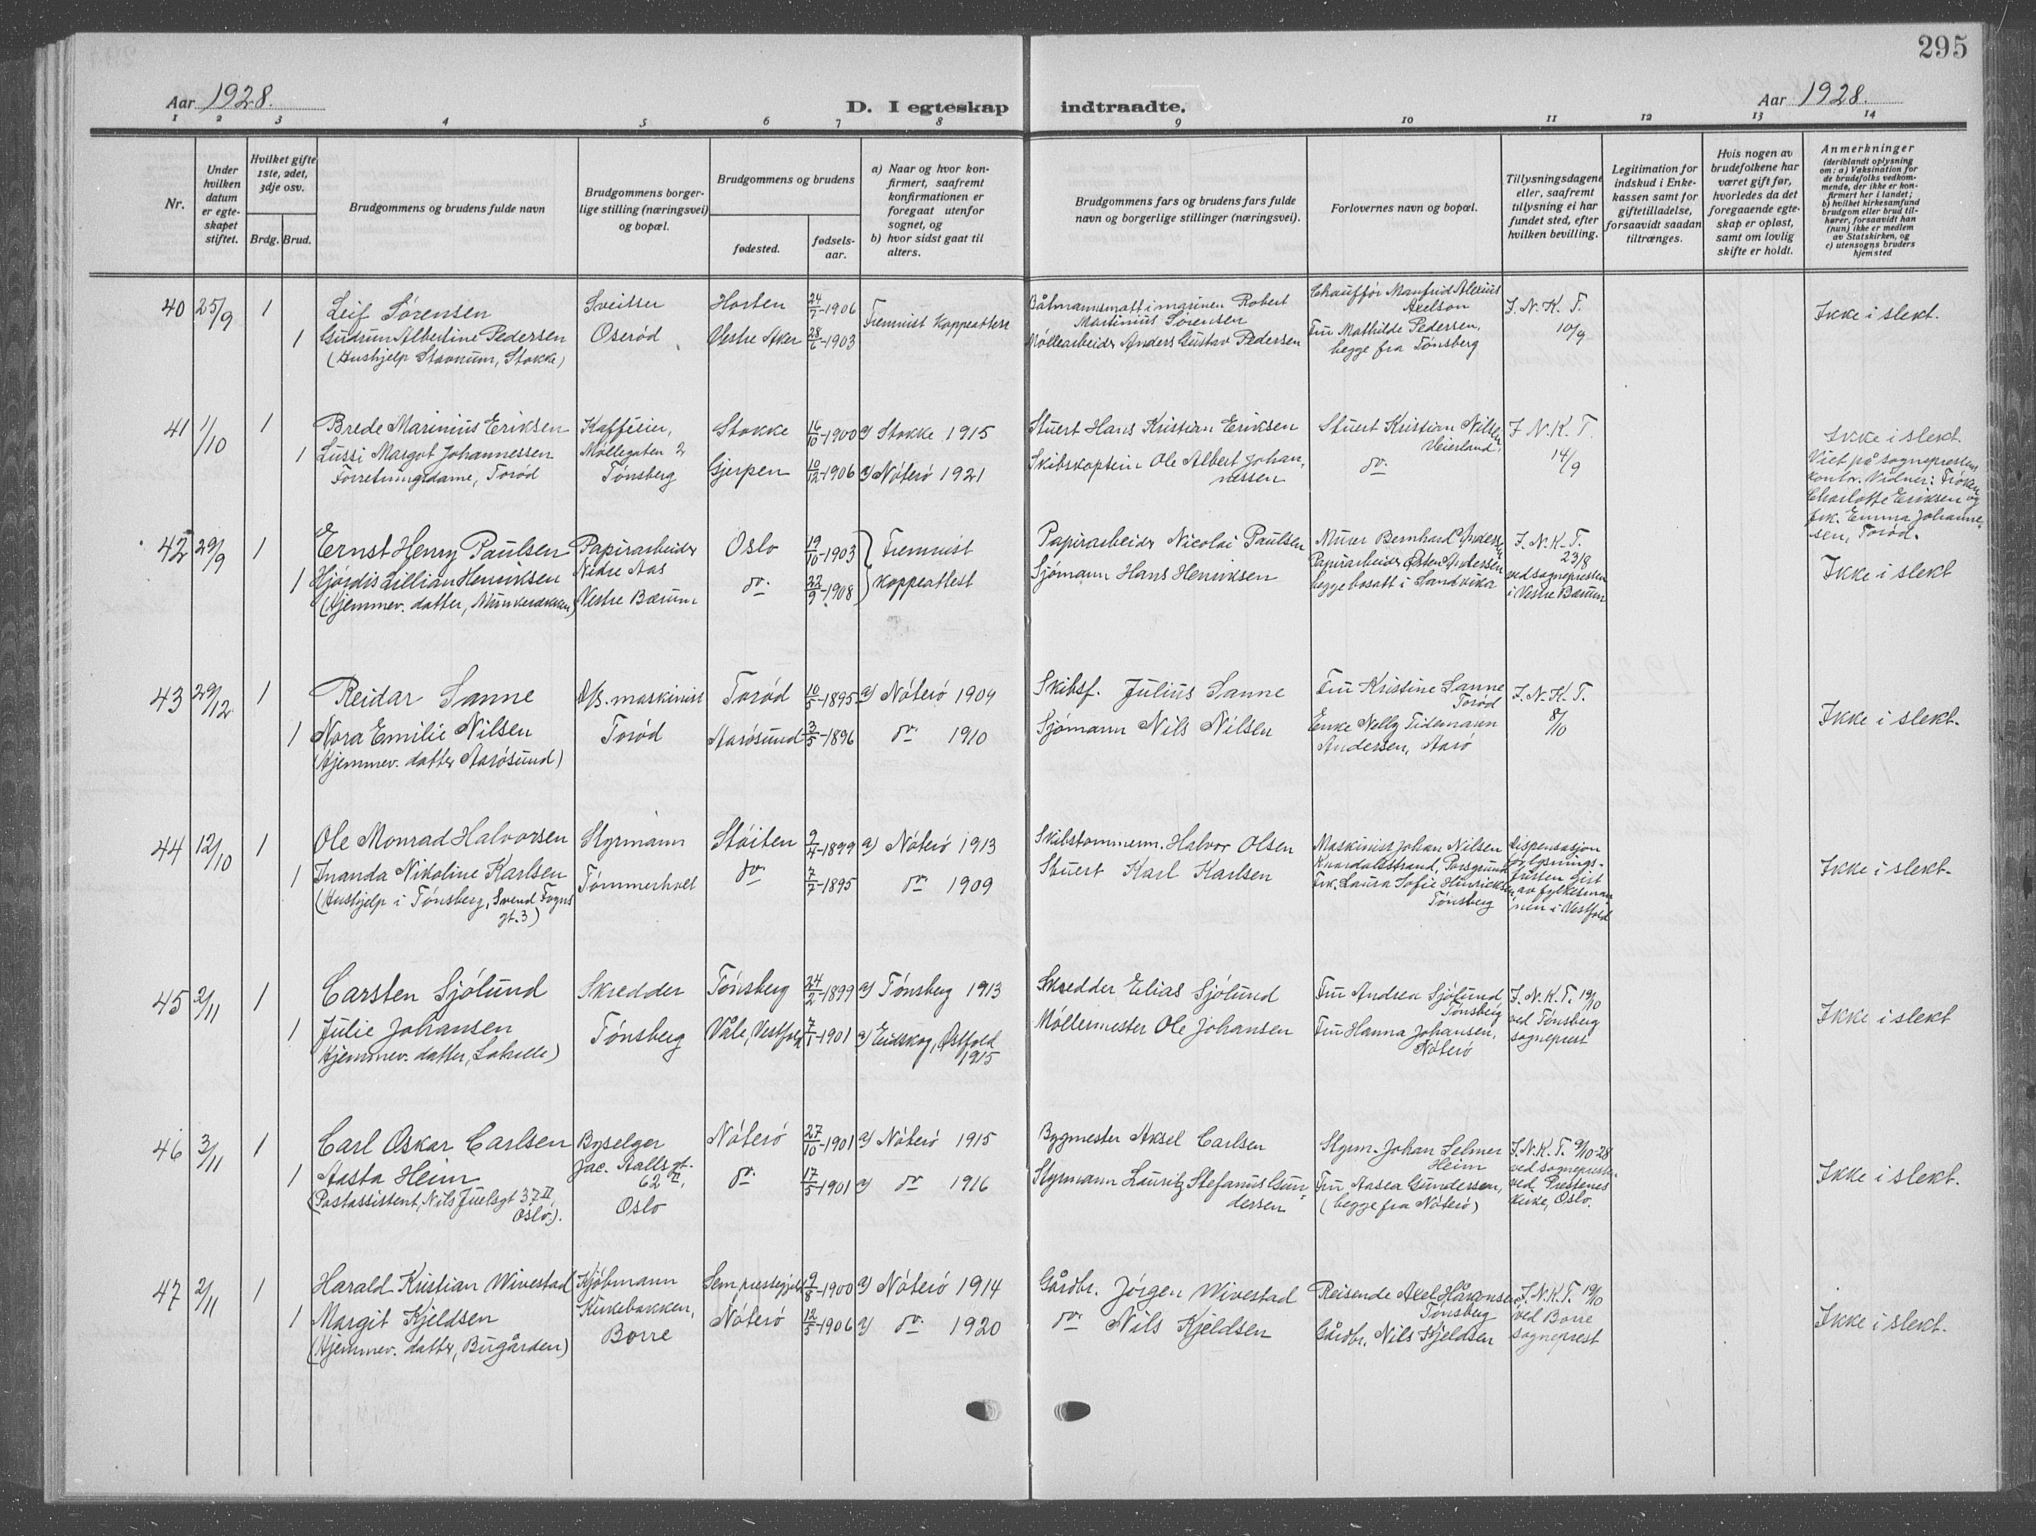 295
Aar 1928.
D. I egteskap indtraadte.
Aar 1928.
1 2 3 4 5 6 7 8 9 10 11 12 13 14
Nr.
Under hvilken datum er egteskapet stiftet.
Hvilket gifte 1ste, 2det, 3dje osv.
Brdg. Brud.
Brudgommens og brudens fulde navn
Brudgommens borgerlige stilling (næringsvei) og bopæl.
Brudgommens og brudens
fødested.
fødselsaar.
a) Naar og hvor konfirmert, saafremt konfirmationen er foregaat utenfor sognet, og
b) hvor sidst gaat til alters.
Brudgommens fars og brudens fars fulde navn og borgerlige stillinger (næringsvei).
Forlovernes navn og bopæl.
Tillysningsdagene eller, saafremt tillysning ei har fundet sted, efter hvilken bevilling.
Legitimation for indskud i Enkekassen samt for giftetilladelse, forsaavidt saadan tiltrænges.
Hvis nogen av brudefolkene har været gift før, hvorledes da det foregaaende egteskap er opløst, samt om lovlig skifte er holdt.
Anmerkninger
(deriblandt oplysning om: a) Vaksination for de brudefolks vedkommende, der ikke er konfirmert her i landet; b) hvilket kirkesamfund brudgom eller brud tilhører, forsaavidt han (hun) ikke er medlem av Statskirken, og c) utensogns bruders hjemsted
40 25/9 1 Leif Sørensen Sveitser Horten 24/7-1906 Fremvist Koppeattest
Båtmannsmatt i marinen Robert Martinius Sørensen
Chauffør Manfrid Alexius Axelson
F. N. K. T. 10/9
Ikke i slekt.
1 Gudrun Albertine Pedersen Oserød Vestre Aker 28/6-1903
(Hushjelp Stavnum, Stokke)
Møllearbeider Anders Gustav Pedersen
Fru Mathilde Pedersen, begge fra Tønsberg
41 1/10 1 Brede Marinius Eriksen Stokke 16/10-1900 a) Stokke 1915
Møllegaten 2 Tønsberg
Stuert Hans Kristian Eriksen
Stuert Kristian Nilsen Veierland.
F. N. K. T. 14/9
1 Lussi Margot Johannessen Gjerpen 10/12-1906 a) Nøterø 1921
Forretningsdame, Torød
Skibskaptein Ole Albert Johannessen
do.
Ikke i slekt
Viet på sogneprestens kontor. Vidner: Frøken Charlotte Eriksen og frk. Emma Johannesen, Torød.
42 29/9 1 Ernst Henry Paulsen Papirarbeider Oslo 19/10-1903 Fremvist
Nedre Aas
Vestre Bærum
Papirarbeider Nicolai Paulsen
Murer Bernhard Andersen
F. N. K. T. 23/8
ved sognepresten i Vestre Bærum
1 Hjørdis Lillian Henriksen do. 22/9-1908 Koppeattest
(Hjemmev. datter, Munkerekken)
Sjømann Hans Henriksen
Papirarbeider Østen Andersen begge bosatt i Sandvika
Ikke i slekt
43 29/12 1 Reidar Sanne D/S. maskinist Torød 10/5-1895 a) Nøterø 1909
Skibsf. Julius Sanne
Fru Kristine Sanne Torød
F. N. K. T. 8/10
1 Nora Emilie Nilsen Torød Aarøsund 3/5-1896 do. 1910
(Hjemmev. datter Aarøsund)
Sjømann Nils Nilsen
Enke Nelly Tidemann Andersen, Aarø
Ikke i slekt.
44 12/10 1 Ole Monrad Halvorsen Styrmann Støiten 9/4-1899 a) Nøterø 1913
Skibstømmerm. Halvor Olsen
Maskinist Johan Nilsen Knardalsstrand, Porsgrund
dispensasjon for lysningsfristen gitt av fylkesmannen i Vestfold
1 Inanda Nikoline Karlsen Tømmerholt do. 7/2-1895 do. 1909
(Hushjelp i Tønsberg, Svend Foyns gt. 3)
Stuert Karl Karlsen
Frk. Laura Sofie Hinriksen Tønsberg
Ikke i slekt.
45 2/11 1 Carsten Sjølund Skredder Tønsberg 24/2-1899 a) Tønsberg 1913
Skredder Elias Sjølund
Fru Andrea Sjølund, Tønsberg
F. N. K. T. 19/10
ved Tønsberg sogneprest
1 Julie Johansen Tønsberg Våle, Vestfold 7/1-1901 a) Eidskog, Østfold 1915
(Hjemmev. datter,
Møllermester Ole Johansen
Fru Hanna Johansen, Nøterø
Ikke i slekt
46 3/11 1 Carl Oskar Carlsen Byselger Nøterø 27/10-1901 a) Nøterø 1915
Jac. Aalls gt. 62 II, Oslo
Bygmester Aksel Carlsen
Styrm. Johan Selmer Heim
F. N. K. T. 9/10-28
ved sogneprest
kirke, Oslo.
1 Aasta Heim do. 17/5-1901 a) do. 1916
(Postassistent, Nils Juelsgt 37 II Oslo).
Styrmann Lauritz Stefanus Gundersen
Fru Aasea Gundersen, (begge fra Nøterø)
Ikke i slekt.
47 2/11 1 Harald Kristian Wivestad Kjøbmann Sem prestegjeld 9/8-1900 a) Nøterø 1914
Kirkebakken, Borre
Gårdbr. Jørgen Wivestad
Reisende Axel Håkonsen, Tønsberg
F. N. K. T. 19/10
ved Borre sogneprest
1 Margit Kjeldsen Nøterø 12/5-1906 a) do. 1920
(Hjemmev. datter, Bugården)
do. Nils Kjeldsen
Gårdbr. Nils Kjeldsen
Ikke i slekt.